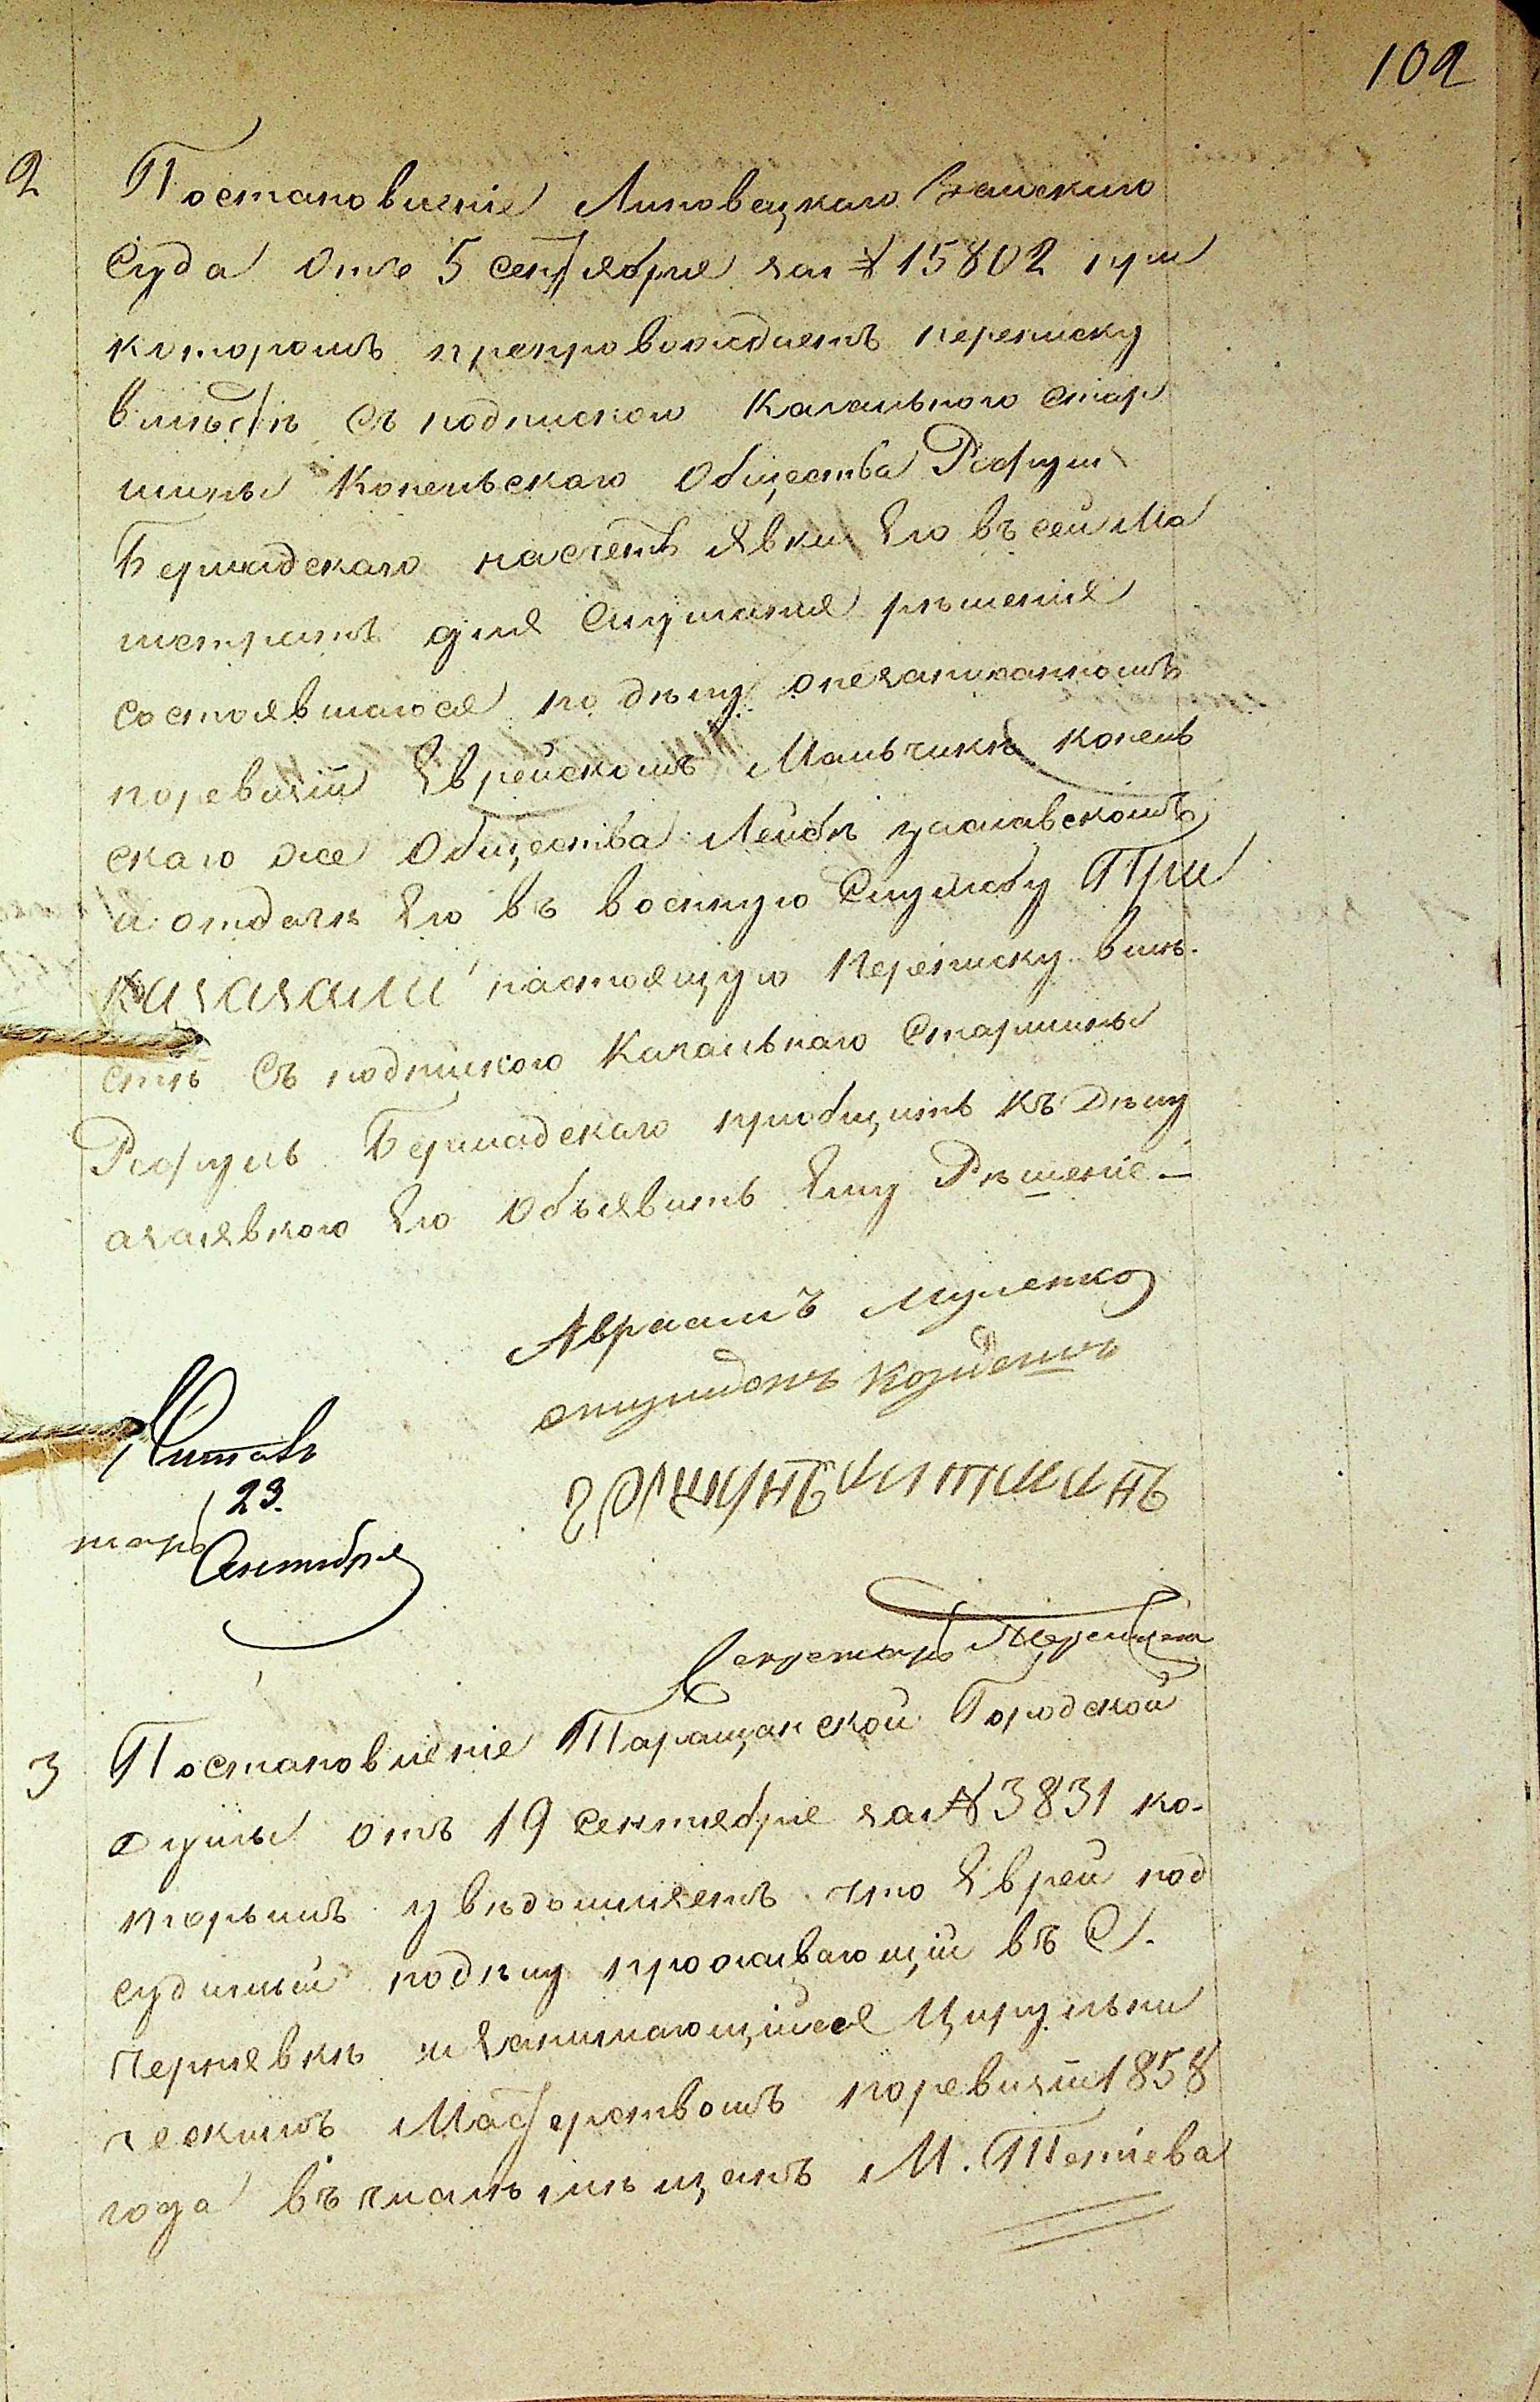 102
2 Постановленіе Липовецкаго Земскаго
Суда отъ 5 сентября за № 15802 при
которомъ препровождаетъ переписку
вмѣстѣ съ подпискою Кагальнаго Стар
шины Конельскаго Общества Рефуля
Бершадскаго насчетъ явки Его въ сей Ма
гистратъ для Слушанія рѣшенія
состоявшагося по дѣлу о незаписанномъ
поревизіи Еврейскомъ Мальчикѣ Конель
скаго же Общества Лейбѣ Заславскомъ
и отдачѣ Его въ военную Службу При
казали настоящую Переписку вмѣ-
стѣ Съ подпискою Кагальнаго Старшины
Рефуля Бершадскаго пріобщить къ Дѣлу
азаявкою Его Объявить Ему Рѣшеніе –
Авраамъ
Читалъ
23.
Сентября
Секретарь
3 Постановленіе Таращанской Городской
Думы отъ 19 Сентября за № 3831 ко-
торымъ увѣдомляетъ что Еврей под
судимый подѣлу проживающій въ С.
Чернявкѣ и Занимающійся Цирульни
ческимъ Мастерствомъ поревизіи 1858
года въчислѣ мѣщанъ М. Тетіева